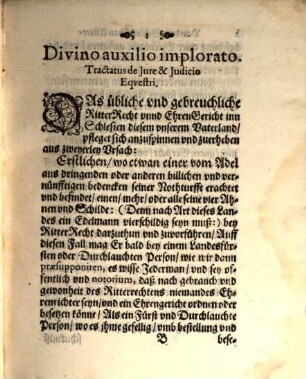 1
Divino auxilio implorato.
Tractatus de Jure & Judicio
Eqvestri.
DAs übliche vnd gebreuchliche
RitterRecht vnnd EhrenGericht inn
Schlesien diesem vnserem Vaterland/
pfleget sich anzuspinnen vnd zuerheben
aus zweyerley Ursach:
Erstlichen/ wo etwan einer vom Adel
aus dringenden oder anderen billichen vnd ver-
nünfftigen bedencken seiner Notturfft erachtet
vnd befindet/ einen/ mehr/ oder alle seine vier Ah-
nen vnd Schilde: (Denn nach Art dieses Lan-
des ein Edelmann vierschildig seyn muß:) bey
Ritter Recht darzuthun vnd zuworführen/ Auff
diesen Fall mag Er bald bey einem Landesfür-
sten oder Durchlauchten Person/ wie wir dann
præsupponiren, es wisse Jederman/ vnd sey of-
fentlich vnd notorium, daß nach gebrauch vnd
gewonheit des Ritterrechtens niemandes Eh-
renrichter seyn/ vnd ein Ehrengericht ordnen oder
besetzen könne/ Als ein Fürst vnd Durchlauchte
Person/ wo es jhme gefellig/ vmb bestellung vnd
B bese-